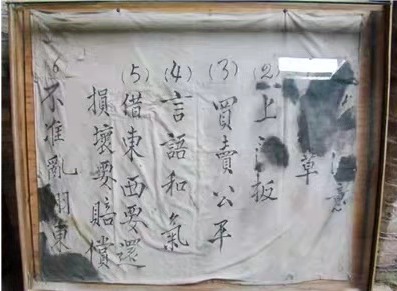 草
(2)上板
(3)買賣公平
(4)言語和氣
(5)借東西要還
損壞要賠償
6不准亂東